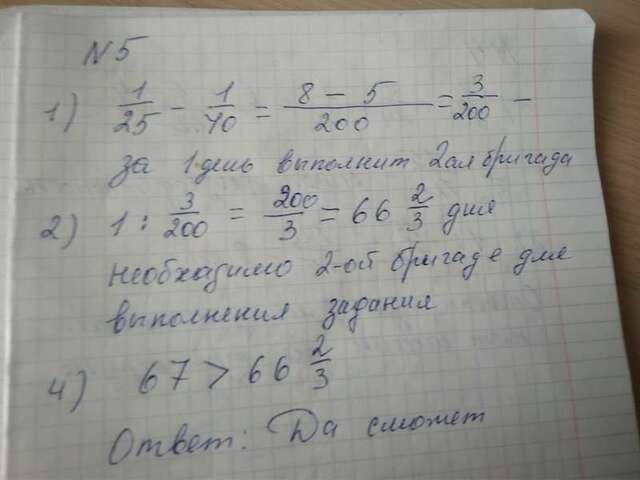 N5
1) 1/25 - 1/40 = 8 - 5/200 = 3/200 -
за 1 день выполнит 2ая бригада
2) 1 : 3/200 = 200/3 = 66 2/3 дня
необходимо 2-ой бригаде для
выполнения задания
4) 67 > 66 2/3
Ответ: Да сможет